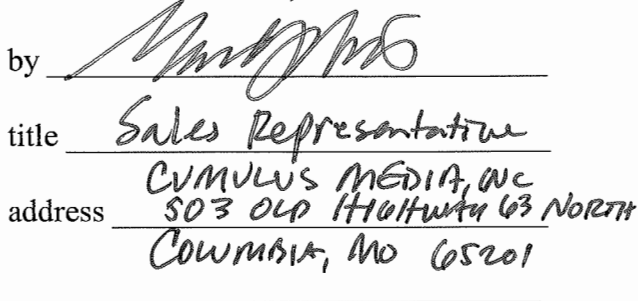 by
title Sales Representative
CUMULUS MEDIA, INC
address 503 OLD HIGHWAY 63 NORTH
COLUMBIA, MO 65201